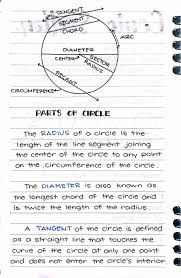 TANGENT
SEGMENT
CHORD
ARC
DIAMETER
CENTER
SECTOR
RADIUS
SECANT
CIRCUMFERENCE
PARTS OF CIRCLE
The RADIUS of a circle is the
length of the line segment joining
the center of the circle to any point
on the circumference of the circle.
The DIAMETER is also known as
the longest chord of the circle and
is twice the length of the radius.
A TANGENT of the circle is defined
as a straight line that touches the
curve of the circle at only one point
and does not enter the circle's interior.